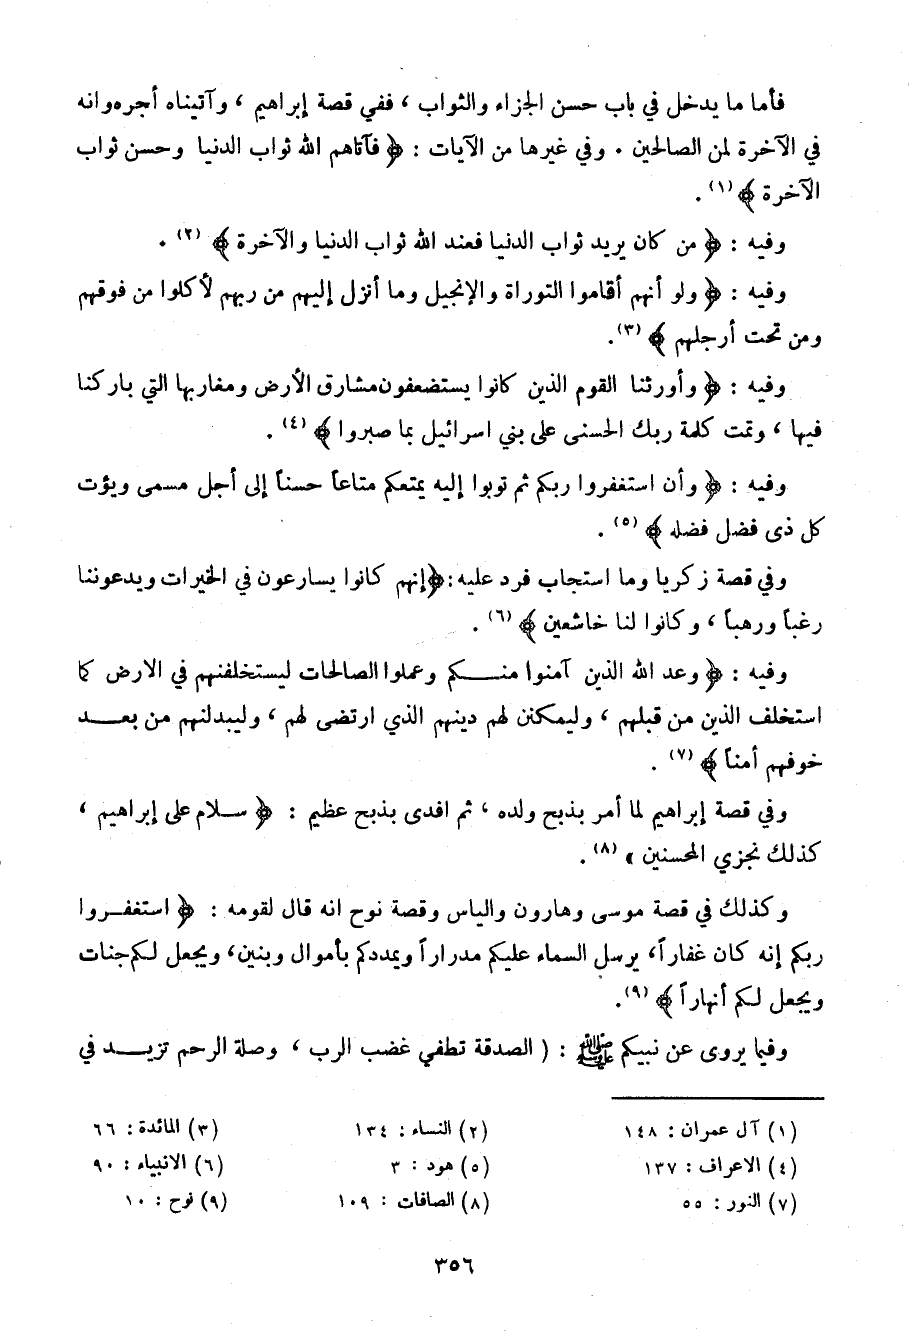 فأما ما يدخل في باب حسن الجزاء والثواب ، ففي قصة إبراهيم ، وآتيناه أجره وانه
في الآخرة لمن الصالحين . وفي غيرها من الآيات : ﴿ فآتاهم الله ثواب الدنيا وحسن ثواب
الآخرة ﴾ (١) .
وفيه : ﴿ من كان يريد ثواب الدنيا فعند الله ثواب الدنيا والآخرة ﴾ (٢) .
وفيه : ﴿ ولو أنهم أقاموا التوراة والإنجيل وما أنزل إليهم من ربهم لأكلوا من فوقهم
ومن تحت أرجلهم ﴾ (٣) .
وفيه : ﴿ وأورثنا القوم الذين كانوا يستضعفون مشارق الأرض ومغاربها التي باركنا
فيها ، وتمت كلمة ربك الحسنى على بني اسرائيل بما صبروا ﴾ (٤) .
وفيه : ﴿ وأن استغفروا ربكم ثم توبوا إليه يمتعكم متاعاً حسناً إلى أجل مسمى ويؤت
كل ذى فضل فضله ﴾ (٥) .
وفي قصة زكريا وما استجاب فرد عليه : ﴿ إنهم كانوا يسارعون في الخيرات ويدعوننا
رغباً ورهباً ، وكانوا لنا خاشعين ﴾ (٦) .
وفيه : ﴿ وعد الله الذين آمنوا منكم وعملوا الصالحات ليستخلفنهم في الارض كما
استخلف الذين من قبلهم ، وليمكنن لهم دينهم الذي ارتضى لهم ، وليبدلنهم من بعد
خوفهم أمناً ﴾ (٧) .
وفي قصة إبراهيم لما أمر بذبح ولده ، ثم افدى بذبح عظيم : ﴿ سلام على إبراهيم ،
كذلك نجزي المحسنين » (٨) .
وكذلك في قصة موسى وهارون والياس وقصة نوح انه قال لقومه : ﴿ استغفروا
ربكم إنه كان غفاراً ، يرسل السماء عليكم مدراراً ويمددكم بأموال وبنين ، ويجعل لكم جنات
ويجعل لكم أنهاراً ﴾ (٩) .
وفيما يروى عن نبيكم ﷺ : ( الصدقة تطفي غضب الرب ، وصلة الرحم تزيد في
(١) آل عمران : ١٤٨ (٢) النساء : ١٣٤ (٣) المائدة : ٦٦
(٤) الاعراف : ١٣٧ (٥) هود : ٣ (٦) الانبياء : ٩٠
(٧) النور : ٥٥ (٨) الصافات : ١٠٩ (٩) نوح : ١٠
٣٥٦